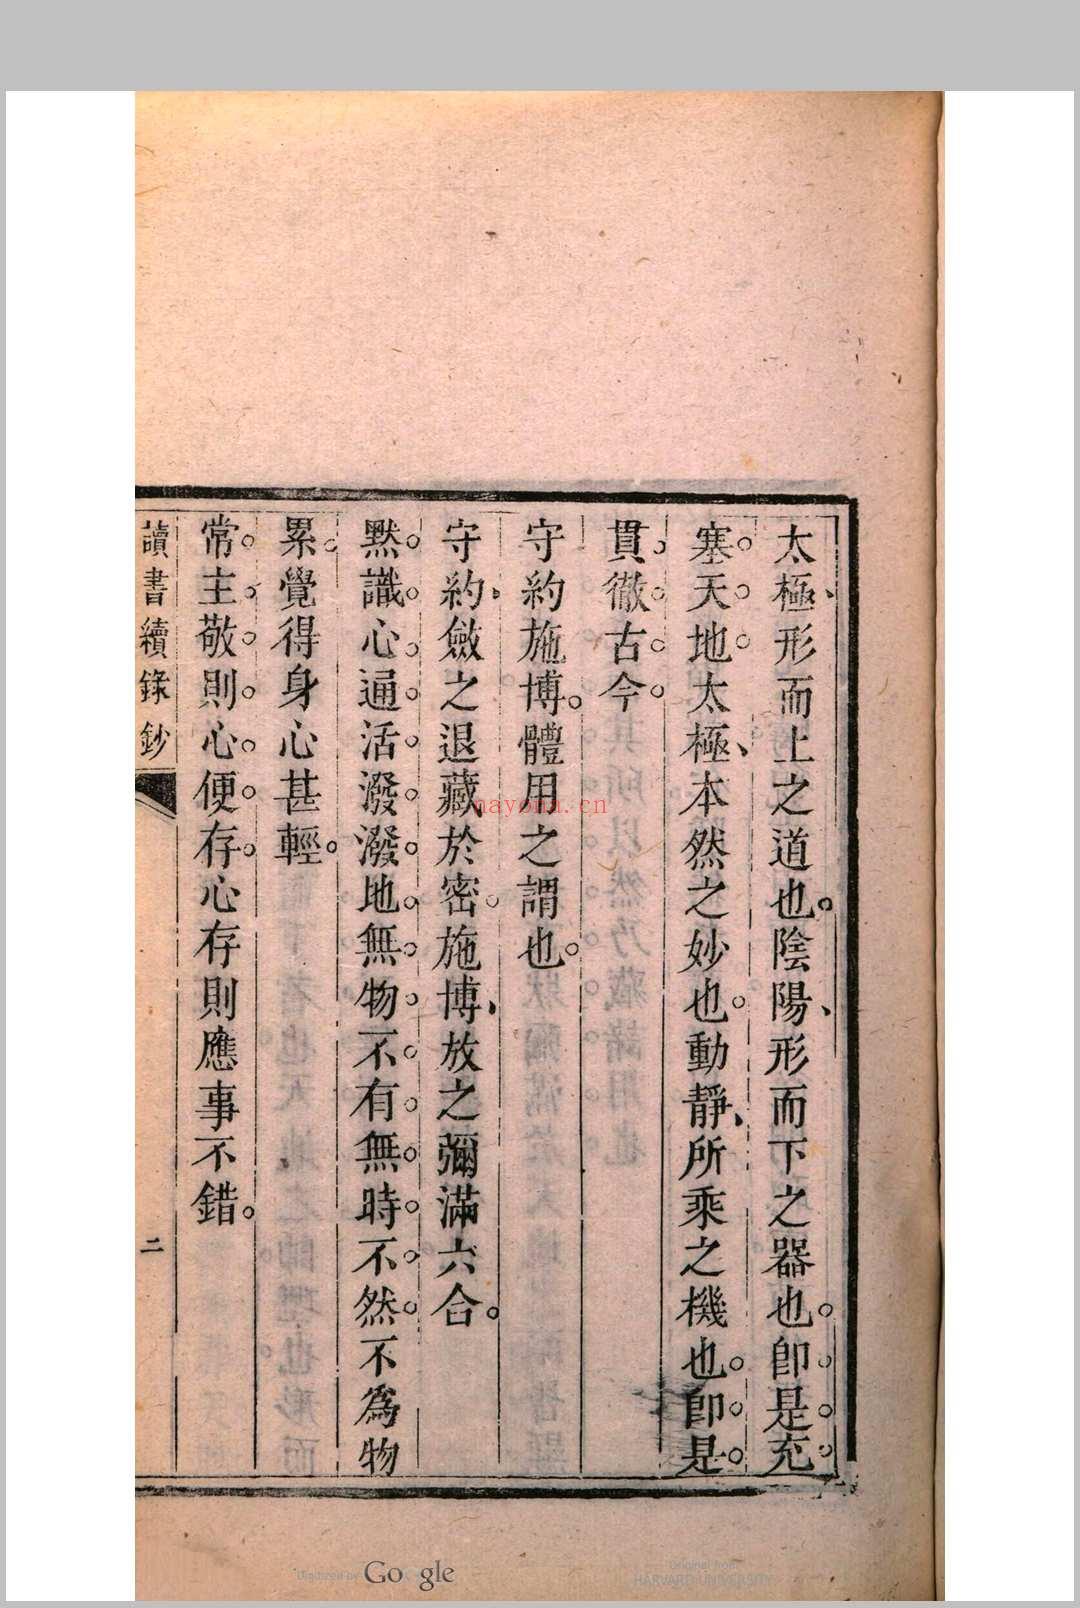 太極、形而上之道也。陰陽、形而下之器也。卽是充
塞天地。太極、本然之妙也。動靜、所乘之機也。卽是
貫徹古今。
守約施博。體用之謂也。
守約、斂之退藏於密。施博、放之彌滿六合。
默識心通活潑潑地無物不有無時不然不爲物
累覺得身心甚輕。
常主敬則心便存心存則應事不錯。
讀書續錄鈔
二
nayona.cn
Digitized by Google
Original from
HARVARD UNIVERSITY